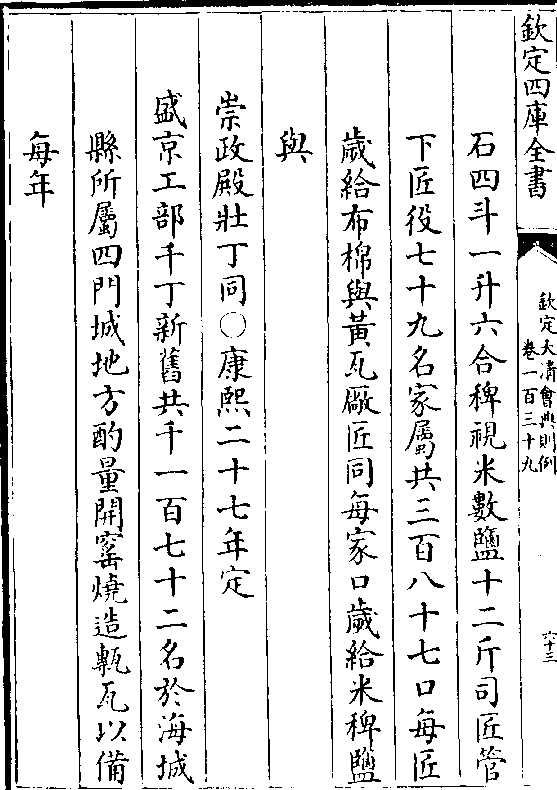 欽定四庫全書
欽定大清會典則例
卷一百三十九
六十三
石四斗一升六合稗視米數鹽十二斤司匠管
下匠役七十九名家屬共三百八十七口每匠
歲給布棉與黃瓦廠匠同每家口歲給米稗鹽
與
崇政殿壯丁同○康熙二十七年定
盛京工部千丁新舊共千一百七十二名於海城
縣所屬四門城地方酌量開窰燒造甎瓦以備
每年